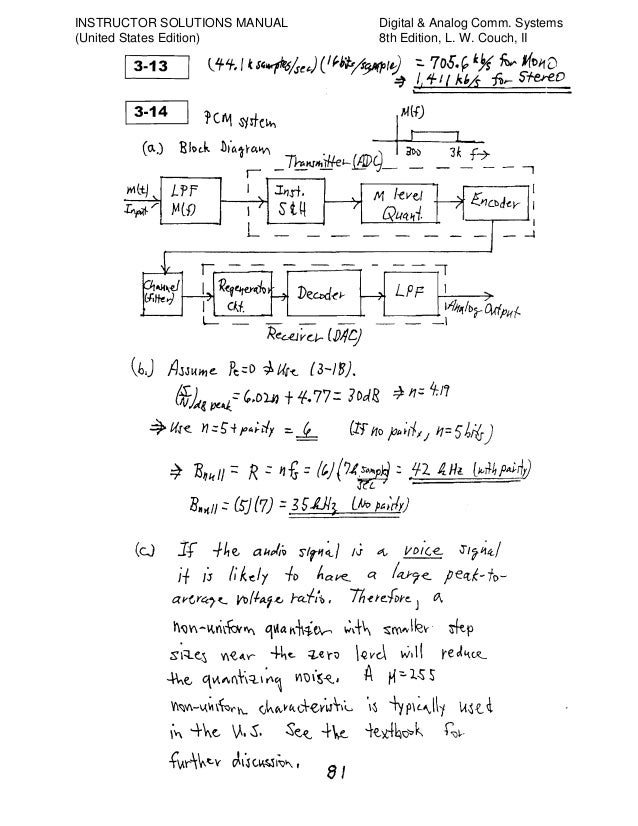 INSTRUCTOR SOLUTIONS MANUAL
Digital & Analog Comm. Systems
(United States Edition)
8th Edition, L. W. Couch, II
3-13
(44.1 k samples/sec)(16 bits/sample) = 705.6 kb/s for Mono
⇒ 1,411 kb/s for Stereo
3-14
PCM system
M(f)
300 3k f→
(a.) Block Diagram
Transmitter (ADC)
m(t)
Input
LPF
M(f)
Inst.
S&H
M level
Quant.
Encoder
Channel
(filter)
Regenerator
Ckt.
Decoder
LPF
Analog Output
Receiver (DAC)
(b.) Assume Pe=0 ⇒ Use (3-18).
(S/N)dB peak = 6.02n + 4.77 = 30dB ⇒ n = 4.19
⇒ Use n=5+parity = 6 (If no parity, n=5 bits)
⇒ Bnull = R = nfs = (6)(7k samples/sec) = 42 kHz (with parity)
Bnull = (5)(7) = 35 kHz (No parity)
(c) If the audio signal is a voice signal
it is likely to have a large peak-to-
average voltage ratio. Therefore, a
non-uniform quantizer with smaller step
sizes near the zero level will reduce
the quantizing noise. A μ=255
non-uniform characteristic is typically used
in the U.S. See the textbook for
further discussion.
81